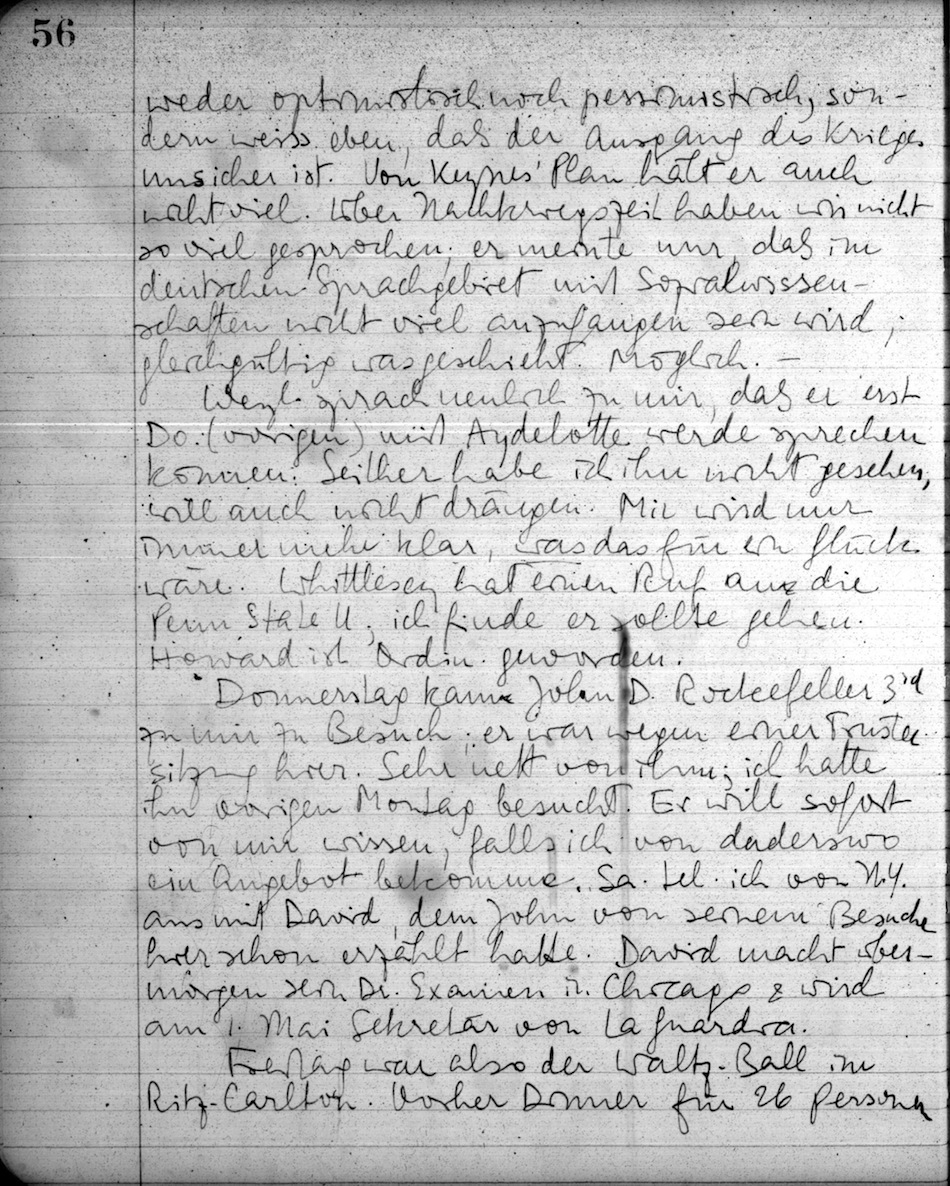 56
weder optimistisch noch pessimistisch, son-
dern weiss eben, daß der Ausgang des Krieges
unsicher ist. Von Keynes' Plan hält er auch
nicht viel. Über Nachkriegszeit haben wir nicht
so viel gesprochen; er meinte nur, daß im
deutschen Sprachgebiet mit Sozialwissen-
schaften nicht viel anzufangen sein wird,
gleichgültig was geschieht. Möglich. –
Weyl sprach neulich zu mir, daß er erst
Do. (vorigen) mit Aydelotte werde sprechen
können. Seither habe ich ihn nicht gesehen,
will auch nicht drängen. Mir wird nur
immer mehr klar, was das für ein Glück
wäre. Whittlesey hat einen Ruf an die
Penn State U.; ich finde er sollte gehen.
Howard ist Ordin. geworden.
Donnerstag kam John D. Rockefeller 3rd
zu mir zu Besuch; er war wegen einer Trustee
sitzung hier. Sehr nett von ihm; ich hatte
ihn vorigen Montag besucht. Er will sofort
von mir wissen, falls ich von anderswo
ein Angebot bekomme. Sa. tel. ich von N.Y.
aus mit David, dem John von seinem Besuche
hier schon erzählt hatte. David macht über-
morgen sein Dr. Examen in Chicago & wird
am 1. Mai Sekretär von La Guardia.
Freitag war also der Waltz-Ball im
Ritz-Carlton. Vorher Dinner für 26 Personen